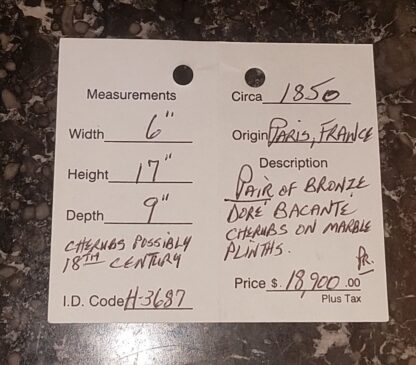 Measurements
Width 6"
Height 17"
Depth 9"
CHERUBS POSSIBLY
18TH CENTURY
I.D. Code H-3687
Circa 1850
Origin PARIS, FRANCE
Description
PAIR OF BRONZE
DORÉ BACANTE
CHERUBS ON MARBLE
PLINTHS.
PR.
Price $ 18,900.00
Plus Tax